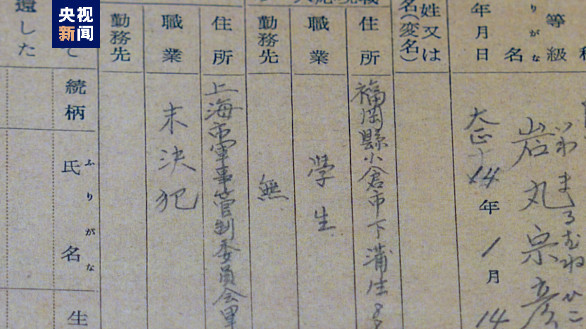 央视新闻
等級
りがな
名
いわまるむねひこ
岩丸宗彦
年月日
大正14年1月14
姓又は
名(変名)
住所
福岡縣小倉市下蒲生
職業
學生
勤務先
無
住所
上海市軍事管制委員会
職業
末決犯
勤務先
て
還した
続柄
ふりがな
氏名
生